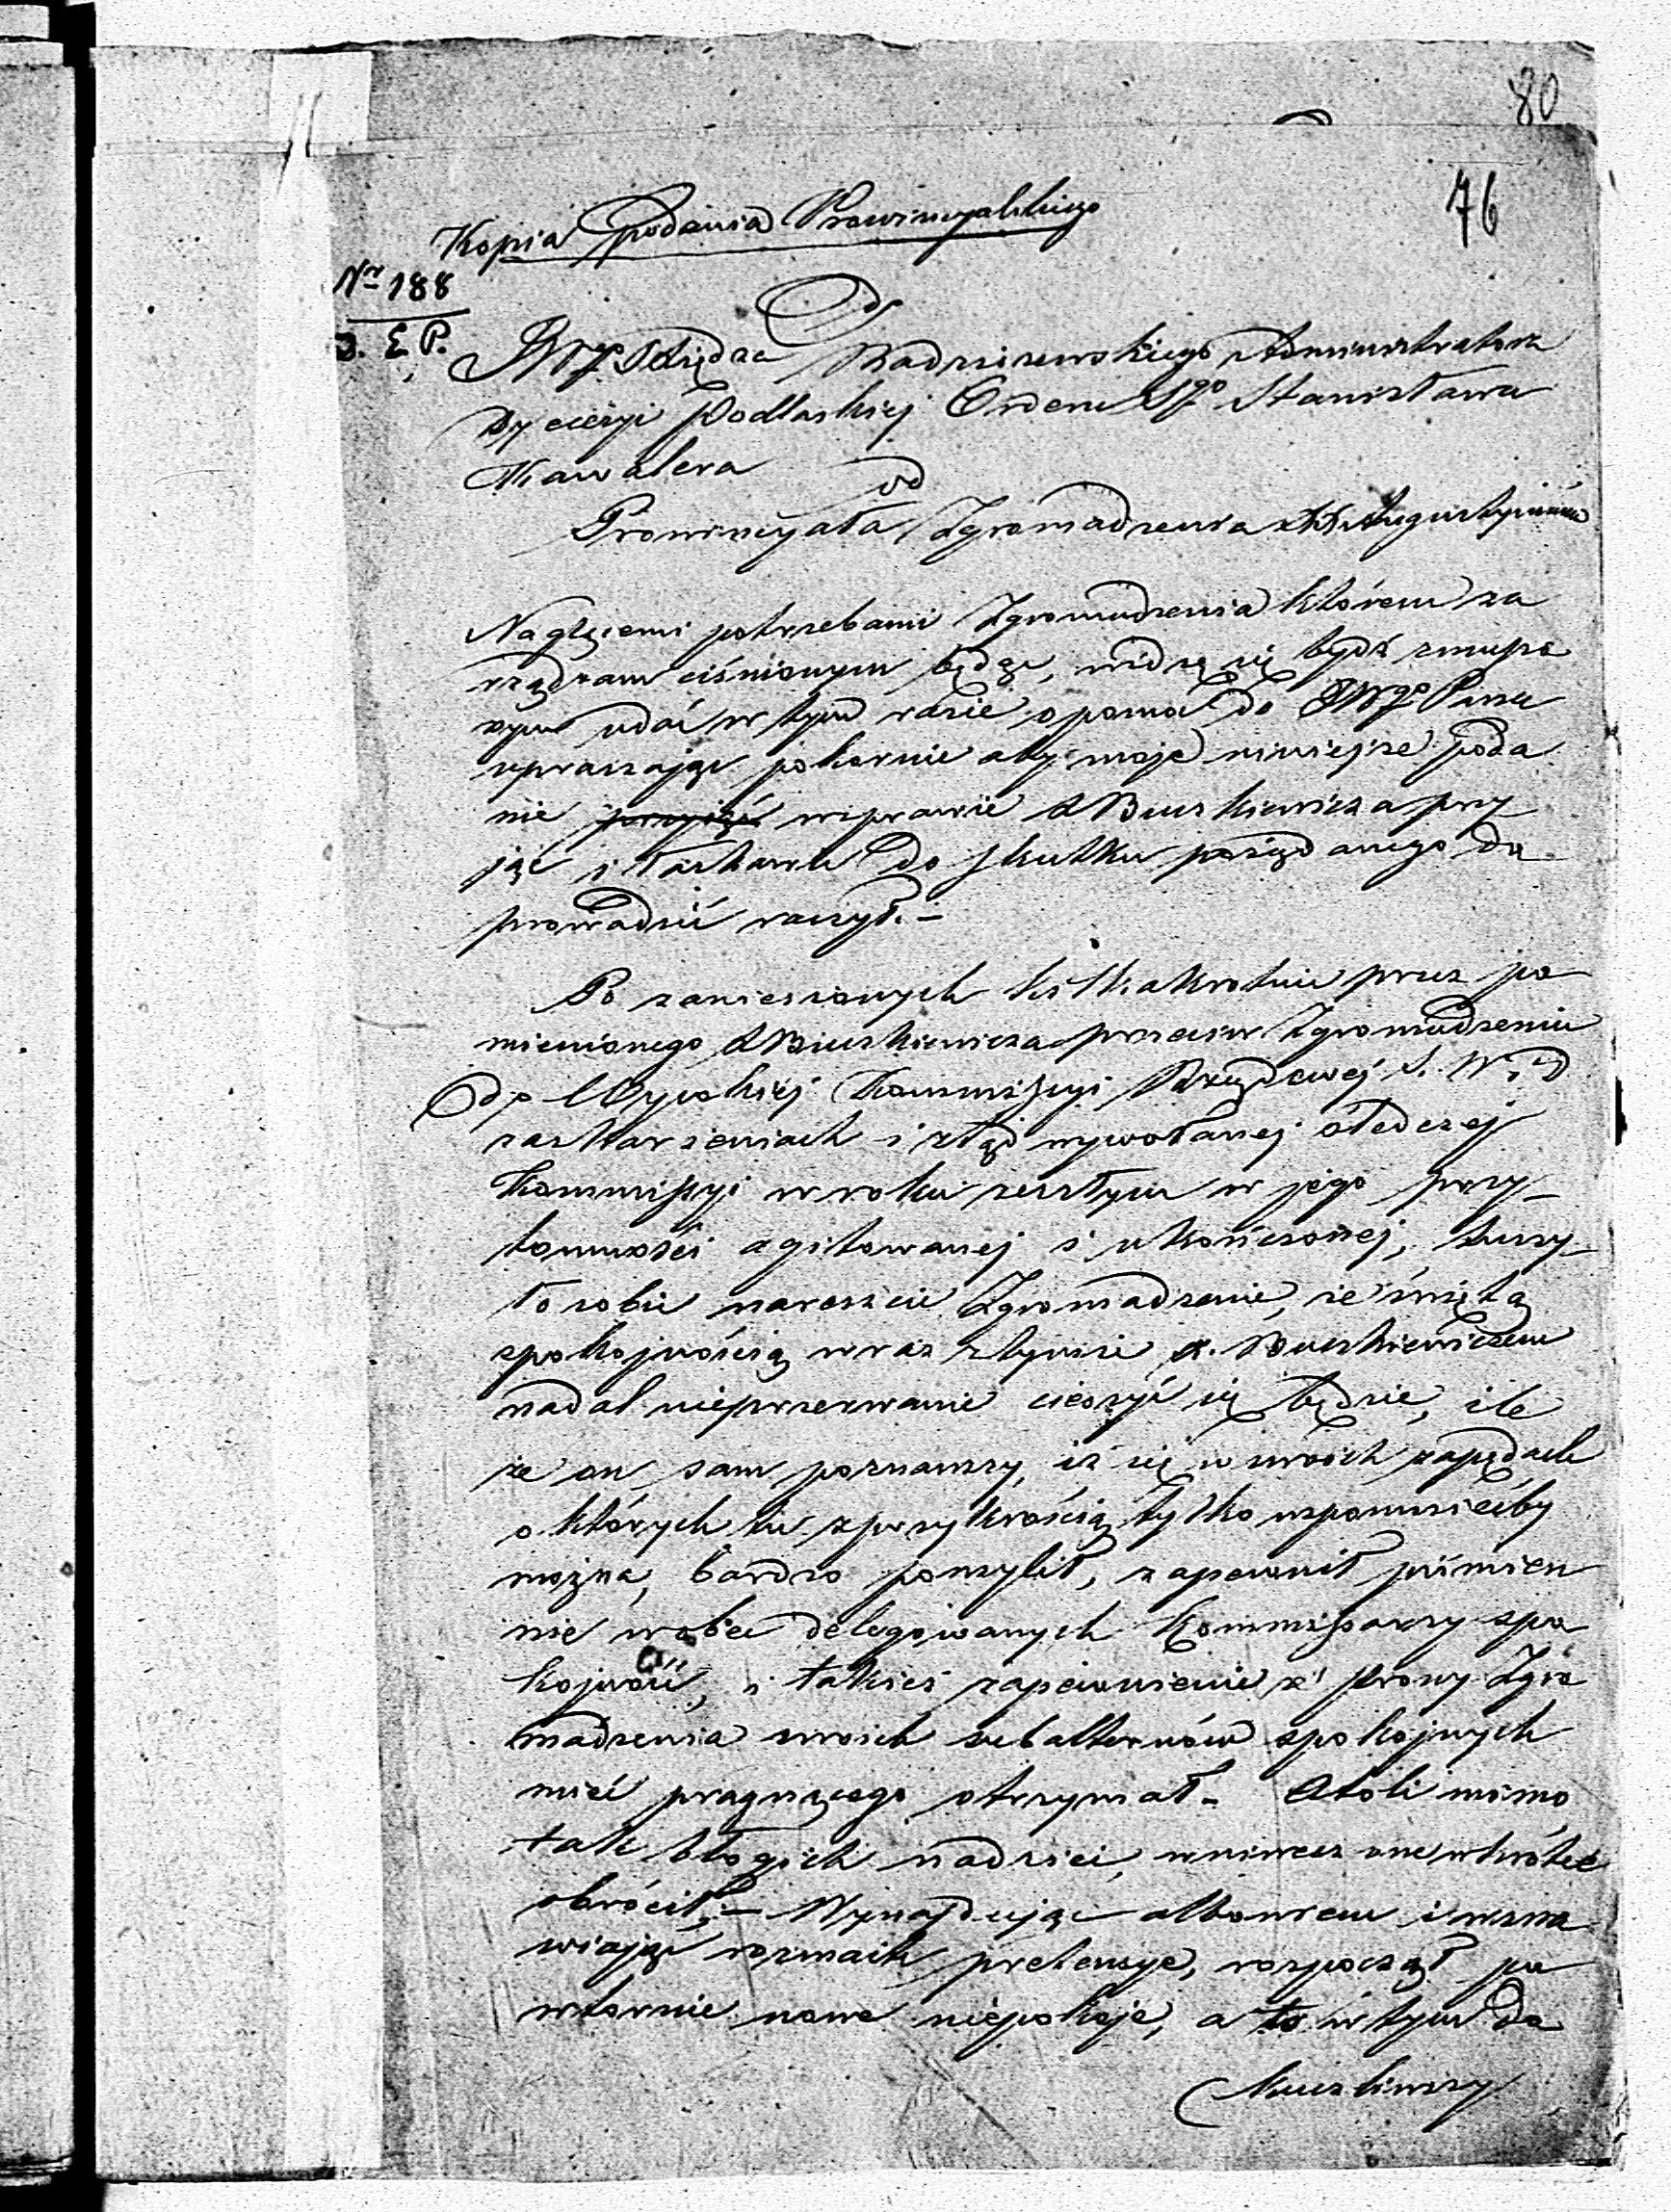 80
76
Kopia podania Prowincyalskiego
Nr 188
D. E. P.
Do
JWgo Xiędza Radziszewskiego Administratora
Dyecezyi Podlaskiej Orderu Sgo Stanisława
Kawalera
od
Prowincyała Zgromadzenia XX Augustyianów
Naglącemi potrzebami Zgromadzenia którem za
rządzam ciśnionym będąc, widzę się bydź zmuszo
nym udać w tym razie o pomoc do JWgo Pana
upraszając pokornie aby moje niniejsze poda
nie w sprawie X Buszkiewicza przy
jąć i łaskawie do skutku pożądanego do
prowadzić raczył. –
Po zaniesionych kilkakrotnie przez po
mienionego X Buszkiewicza przeciw Zgromadzeniu
do Wysokiej Kommissyi Rządowej S. W. i D
zaskarżeniach i ztąd wywołanej śledczej
Kommissyi w roku zeszłym w jego przy-
tomności agitowanej i ukończonej, tuszy-
ło sobie nareszcie Zgromadzenie, że świętą
spokojnością wraz z tymże X. Buszkiewiczem
nadal nieprzerwanie cieszyć się będzie, ile
że on sam poznawszy, iż się w swoich zapędach
o których tu z przykrością tylko wspomniećby
można, bardzo pomylił, zapewnił piśmien
nie wobec delegowanych Kommissarzy spo
kojność, i takież zapewnienie ze strony Zgro
madzenia swoich subalternów spokojnych
mieć pragnącego otrzymał. – Atoli mimo
tak błogich nadziei, wniwecz one wkrótce
obrócił, – Wynajdując albowiem i wzna
wiając rozmaite pretensye, rozpoczął po
wtórnie nowe niepokoje, a to w tym do
kuczliwszy